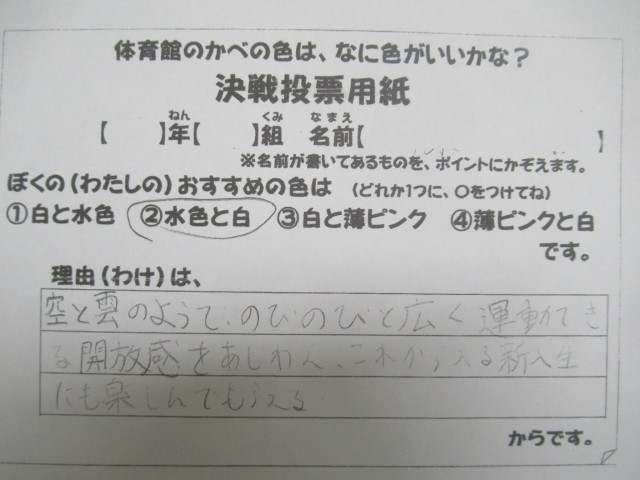 体育館のかべの色は、なに色がいいかな？
決戦投票用紙
ねん くみ なまえ
【 】年【 】組 名前【 】
※名前が書いてあるものを、ポイントにかぞえます。
ぼくの（わたしの）おすすめの色は （どれか1つに、○をつけてね）
①白と水色 ②水色と白 ③白と薄ピンク ④薄ピンクと白
です。
理由（わけ）は、
空と雲のようで、のびのびと広く運動でき
る開放感をあじわい、これから入る新入生
にも楽しんでもらえる
からです。